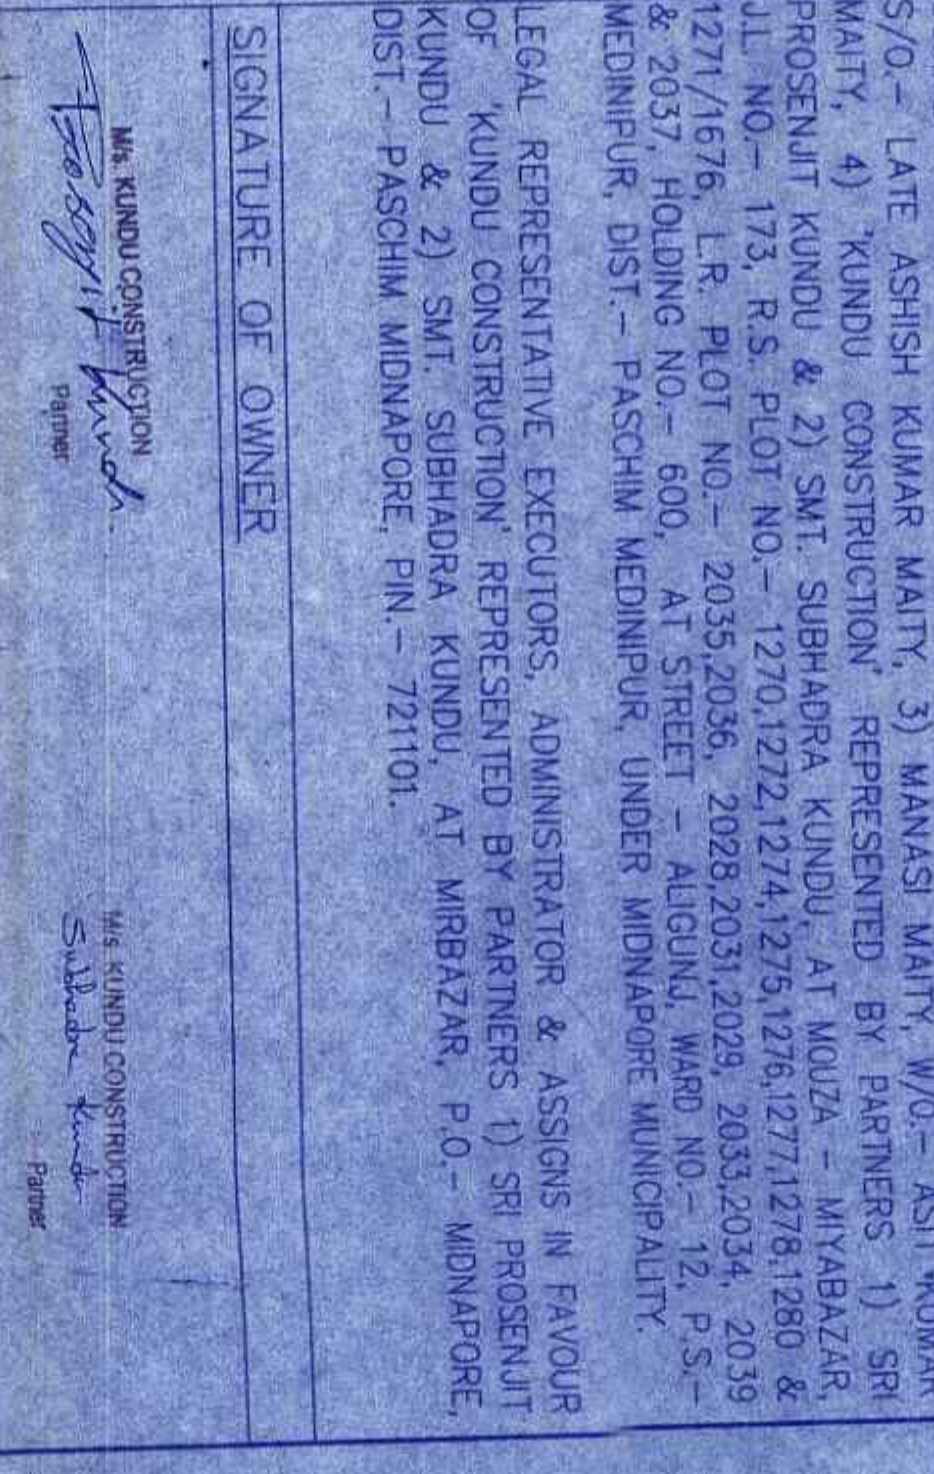 S/O.- LATE ASHISH KUMAR MAITY, 3) MANASI MAITY, W/O.- ASIT KUMAR
MAITY, 4) 'KUNDU CONSTRUCTION' REPRESENTED BY PARTNERS 1) SRI
PROSENJIT KUNDU & 2) SMT. SUBHADRA KUNDU, AT MOUZA - MIYABAZAR,
J.L. NO.- 173, R.S. PLOT NO.- 1270,1272,1274,1275,1276,1277,1278,1280 &
1271/1676, L.R. PLOT NO.- 2035,2036, 2028,2031,2029, 2033,2034, 2039
& 2037, HOLDING NO.- 600, AT STREET - ALIGUNJ, WARD NO.- 12, P.S.-
MEDINIPUR, DIST.- PASCHIM MEDINIPUR, UNDER MIDNAPORE MUNICIPALITY.
LEGAL REPRESENTATIVE EXECUTORS, ADMINISTRATOR & ASSIGNS IN FAVOUR
OF 'KUNDU CONSTRUCTION' REPRESENTED BY PARTNERS 1) SRI PROSENJIT
KUNDU & 2) SMT. SUBHADRA KUNDU, AT MIRBAZAR, P.O.- MIDNAPORE,
DIST.- PASCHIM MIDNAPORE, PIN.- 721101.
SIGNATURE OF OWNER
M/s. KUNDU CONSTRUCTION
Prosenjit Kundu.
Partner
M/s. KUNDU CONSTRUCTION
Subhadra Kundu
Partner